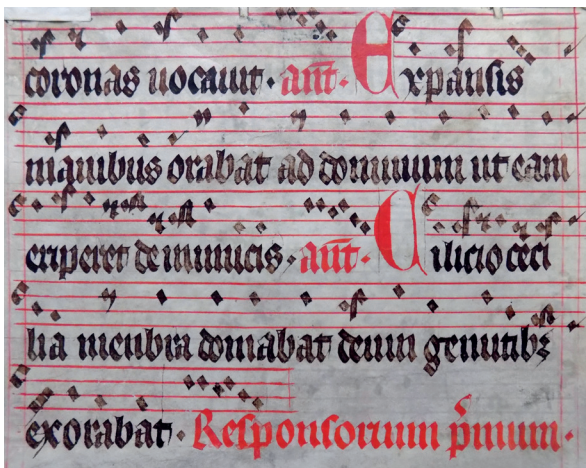 coronas uocauit · ant̄ · Expansis
manibus orabat ad dominum ut eam
eriperet de inimicis · ant̄ · Cilicio ceci
lia menbra domabat deum gemitibꝫ
exorabat · Responsorium p̓mum ·